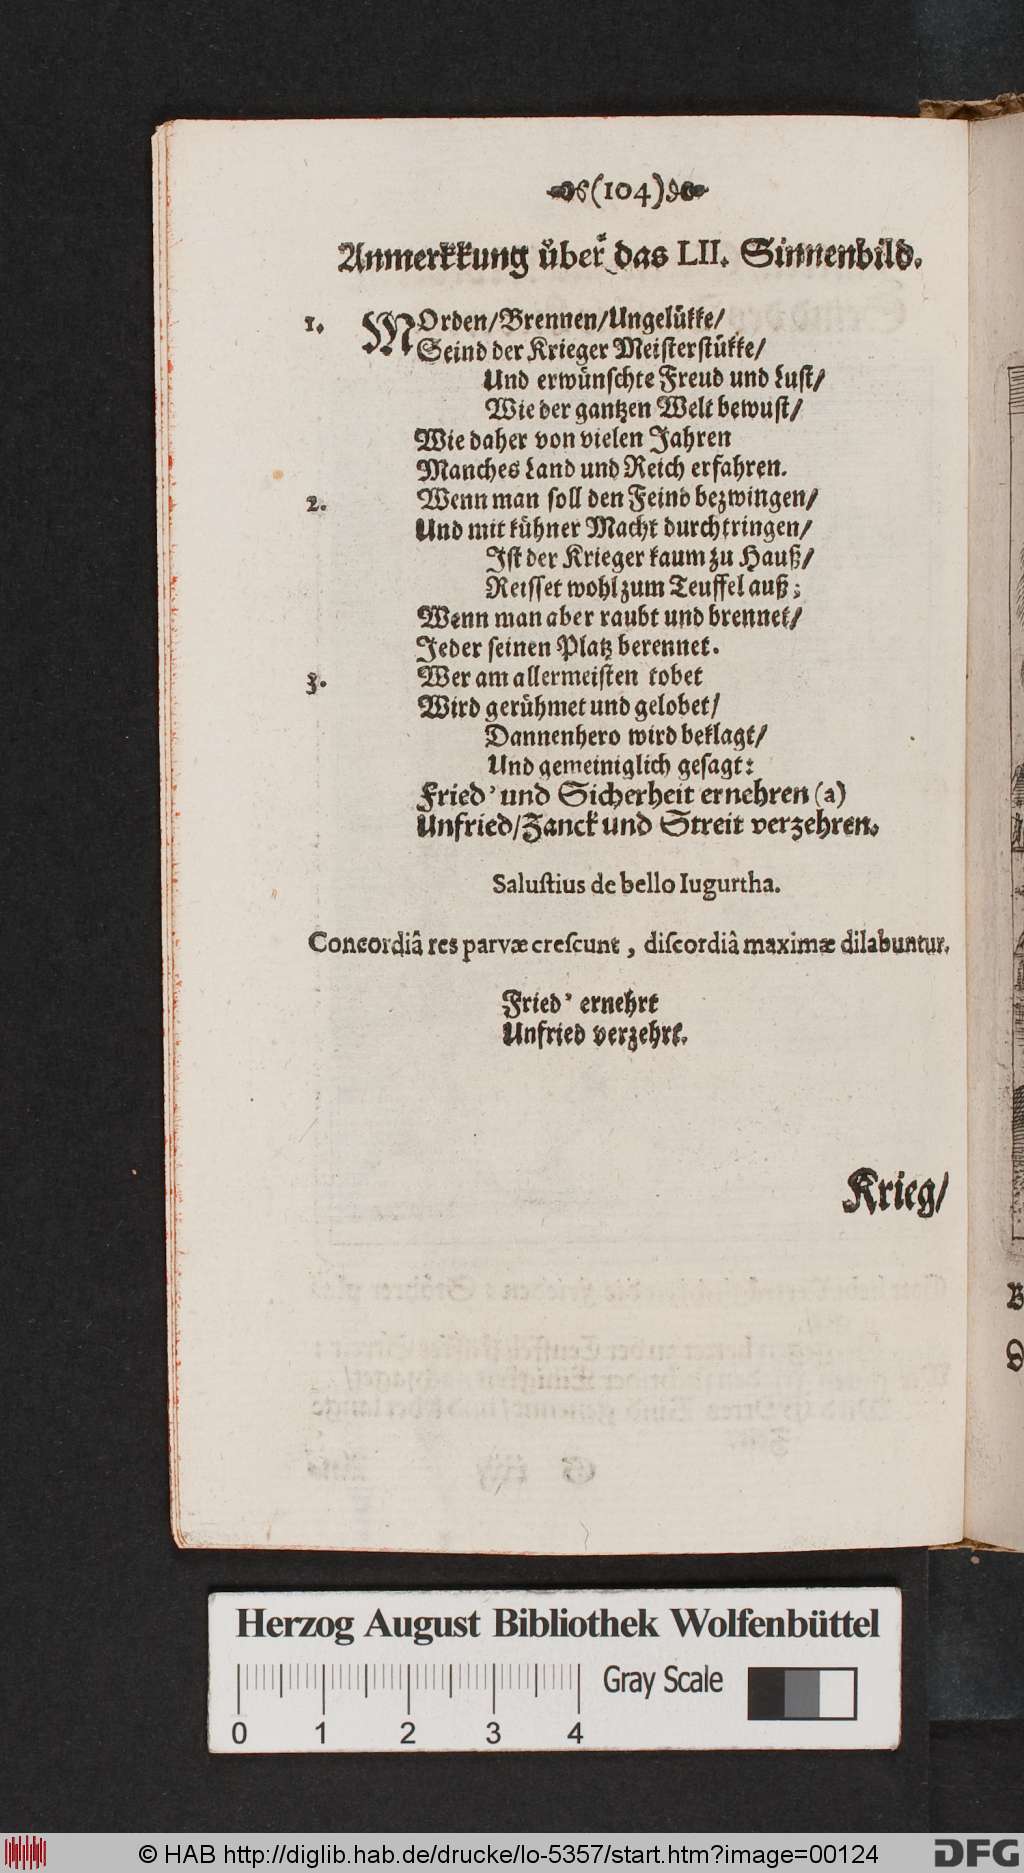 (104)
Anmerkkung über das LII. Sinnenbild.
1. MOrden/Brennen/Ungelükke/
Seind der Krieger Meisterstükke/
Und erwünschte Freud und Lust/
Wie der gantzen Welt bewust/
Wie daher von vielen Jahren
Manches Land und Reich erfahren.
2. Wenn man soll den Feind bezwingen/
Und mit kühner Macht durchtringen/
Ist der Krieger kaum zu Hauß/
Reisset wohl zum Teuffel auß;
Wenn man aber raubt und brennet/
Jeder seinen Platz berennet.
3. Wer am allermeisten tobet
Wird gerühmet und gelobet/
Dannenhero wird beklagt/
Und gemeiniglich gesagt:
Fried' und Sicherheit ernehren (a)
Unfried/Zanck und Streit verzehren.
Salustius de bello Iugurtha.
Concordiâ res parvæ crescunt, discordiâ maximæ dilabuntur.
Fried' ernehrt
Unfried verzehrt.
Krieg/
Herzog August Bibliothek Wolfenbüttel
Gray Scale
0 1 2 3 4
© HAB http://diglib.hab.de/drucke/lo-5357/start.htm?image=00124
DFG